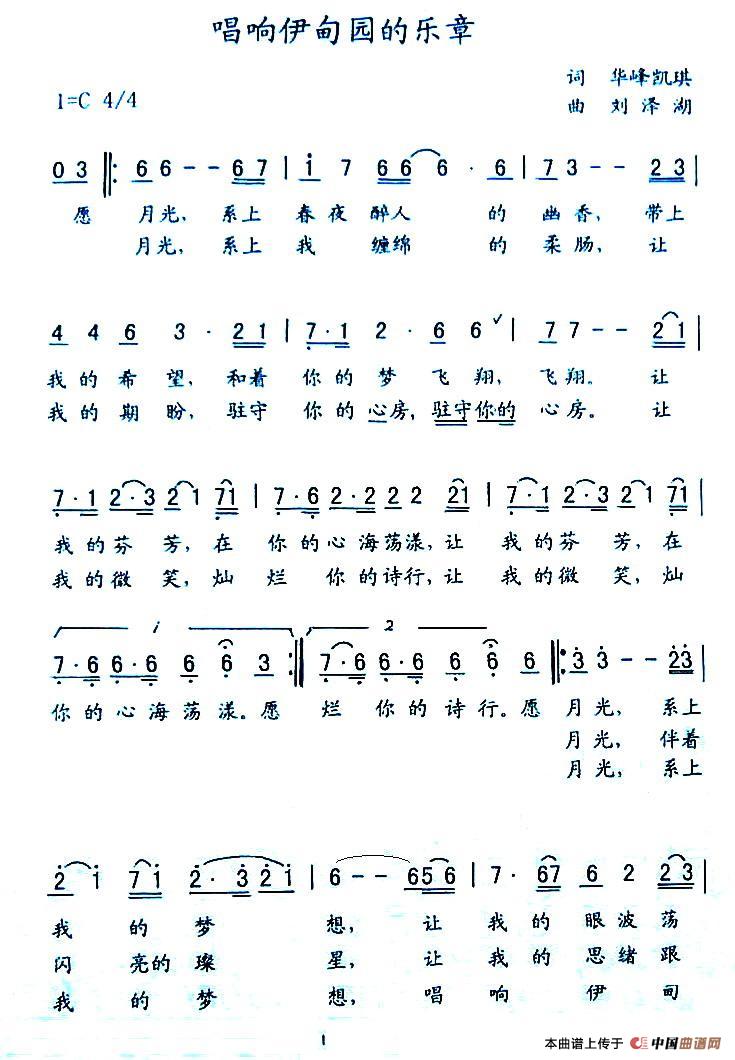 唱响伊甸园的乐章
词 华峰凯琪
1=C 4/4
曲 刘泽湖
0 3 6 6 - - 6 7 i 7 6 6 6 · 6 7 3 - - 2 3
愿 月光, 系上 春夜 醉人 的 幽香, 带上
月光, 系上 我 缠绵 的 柔肠, 让
4 4 6 3 · 2 1 7 · 1 2 · 6 6 7 7 - - 2 1
我的希望, 和着 你的梦 飞翔, 飞翔。 让
我的期盼, 驻守 你的心房, 驻守你的 心房。 让
7 · 1 2 · 3 2 1 7 1 7 · 6 2 · 2 2 2 2 1 7 · 1 2 · 3 2 1 7 1
我的芬芳, 在 你的心海荡漾, 让 我的芬芳, 在
我的微笑, 灿烂 你的诗行, 让 我的微笑, 灿
1 2
7 · 6 6 · 6 6 6 3 7 · 6 6 · 6 6 6 6 3 3 - - 2 3
你的心海荡漾。愿 烂你的诗行。愿 月光, 系上
月光, 伴着
月光, 系上
2 i 7 i 2 · 3 2 i 6 - - 6 5 6 7 · 6 7 6 2 2 3
我 的 梦 想, 让 我的 眼波荡
闪 亮的 璨 星, 让 我的 思绪跟
我 的 梦 想, 唱 响 伊 甸
1
本曲谱上传于 中国曲谱网